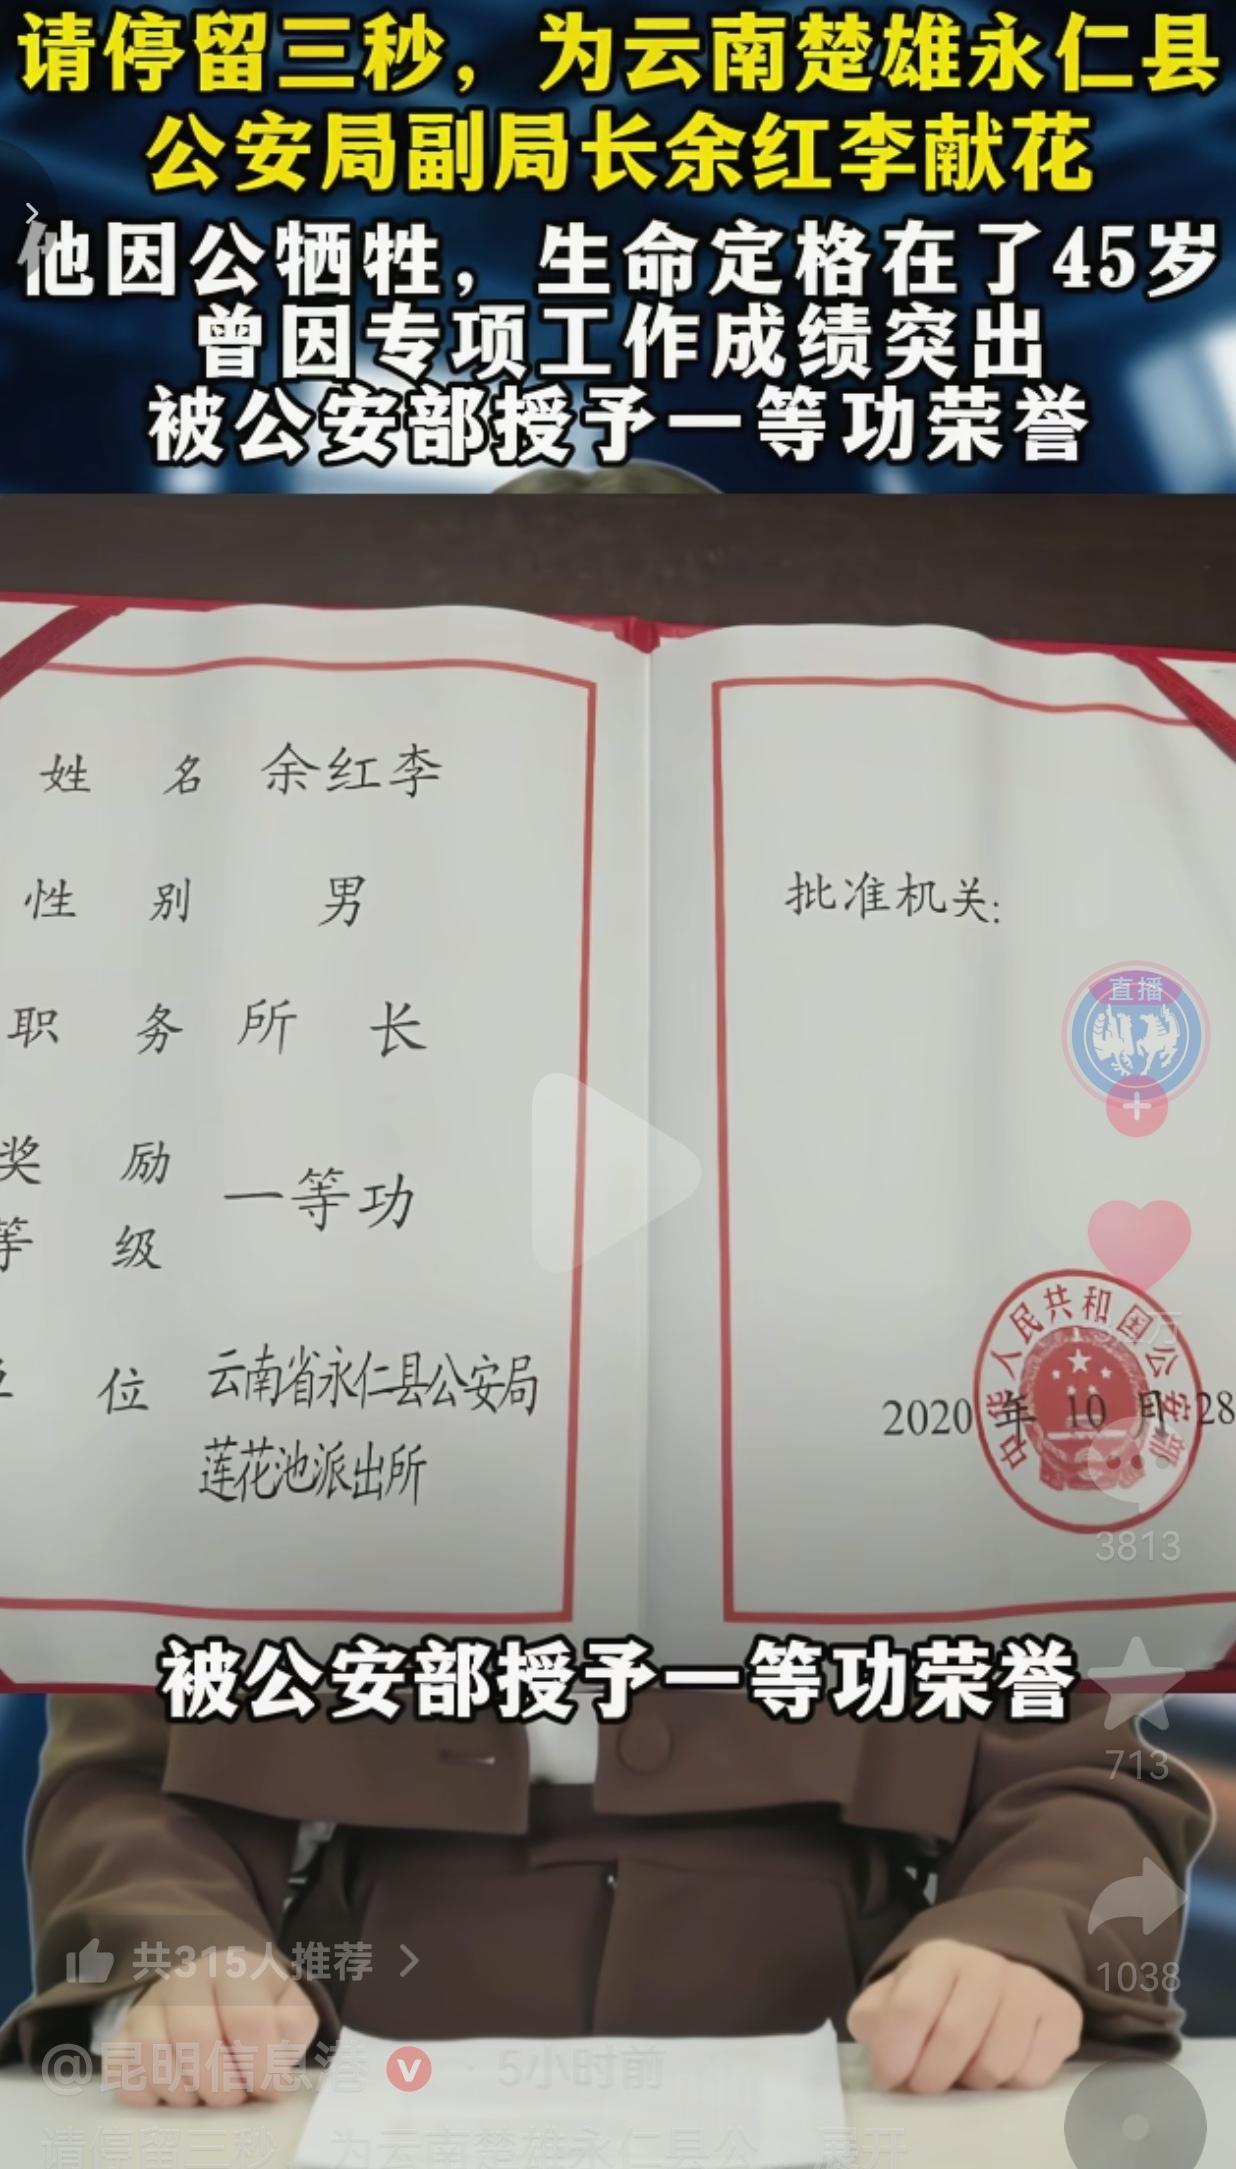 请停留三秒，为云南楚雄永仁县
公安局副局长余红李献花
他因公牺牲，生命定格在了45岁
曾因专项工作成绩突出
被公安部授予一等功荣誉
姓 名 余红李
性 别 男
职 务 所 长
奖 励
等 级
一等功
位 云南省永仁县公安局
莲花池派出所
批准机关：
中华人民共和国公安部
2020 年 10 月 28
直播
万
3813
被公安部授予一等功荣誉
713
1038
共315人推荐
@昆明信息港 · 5小时前
请停留三秒，为云南楚雄永仁县公 展开